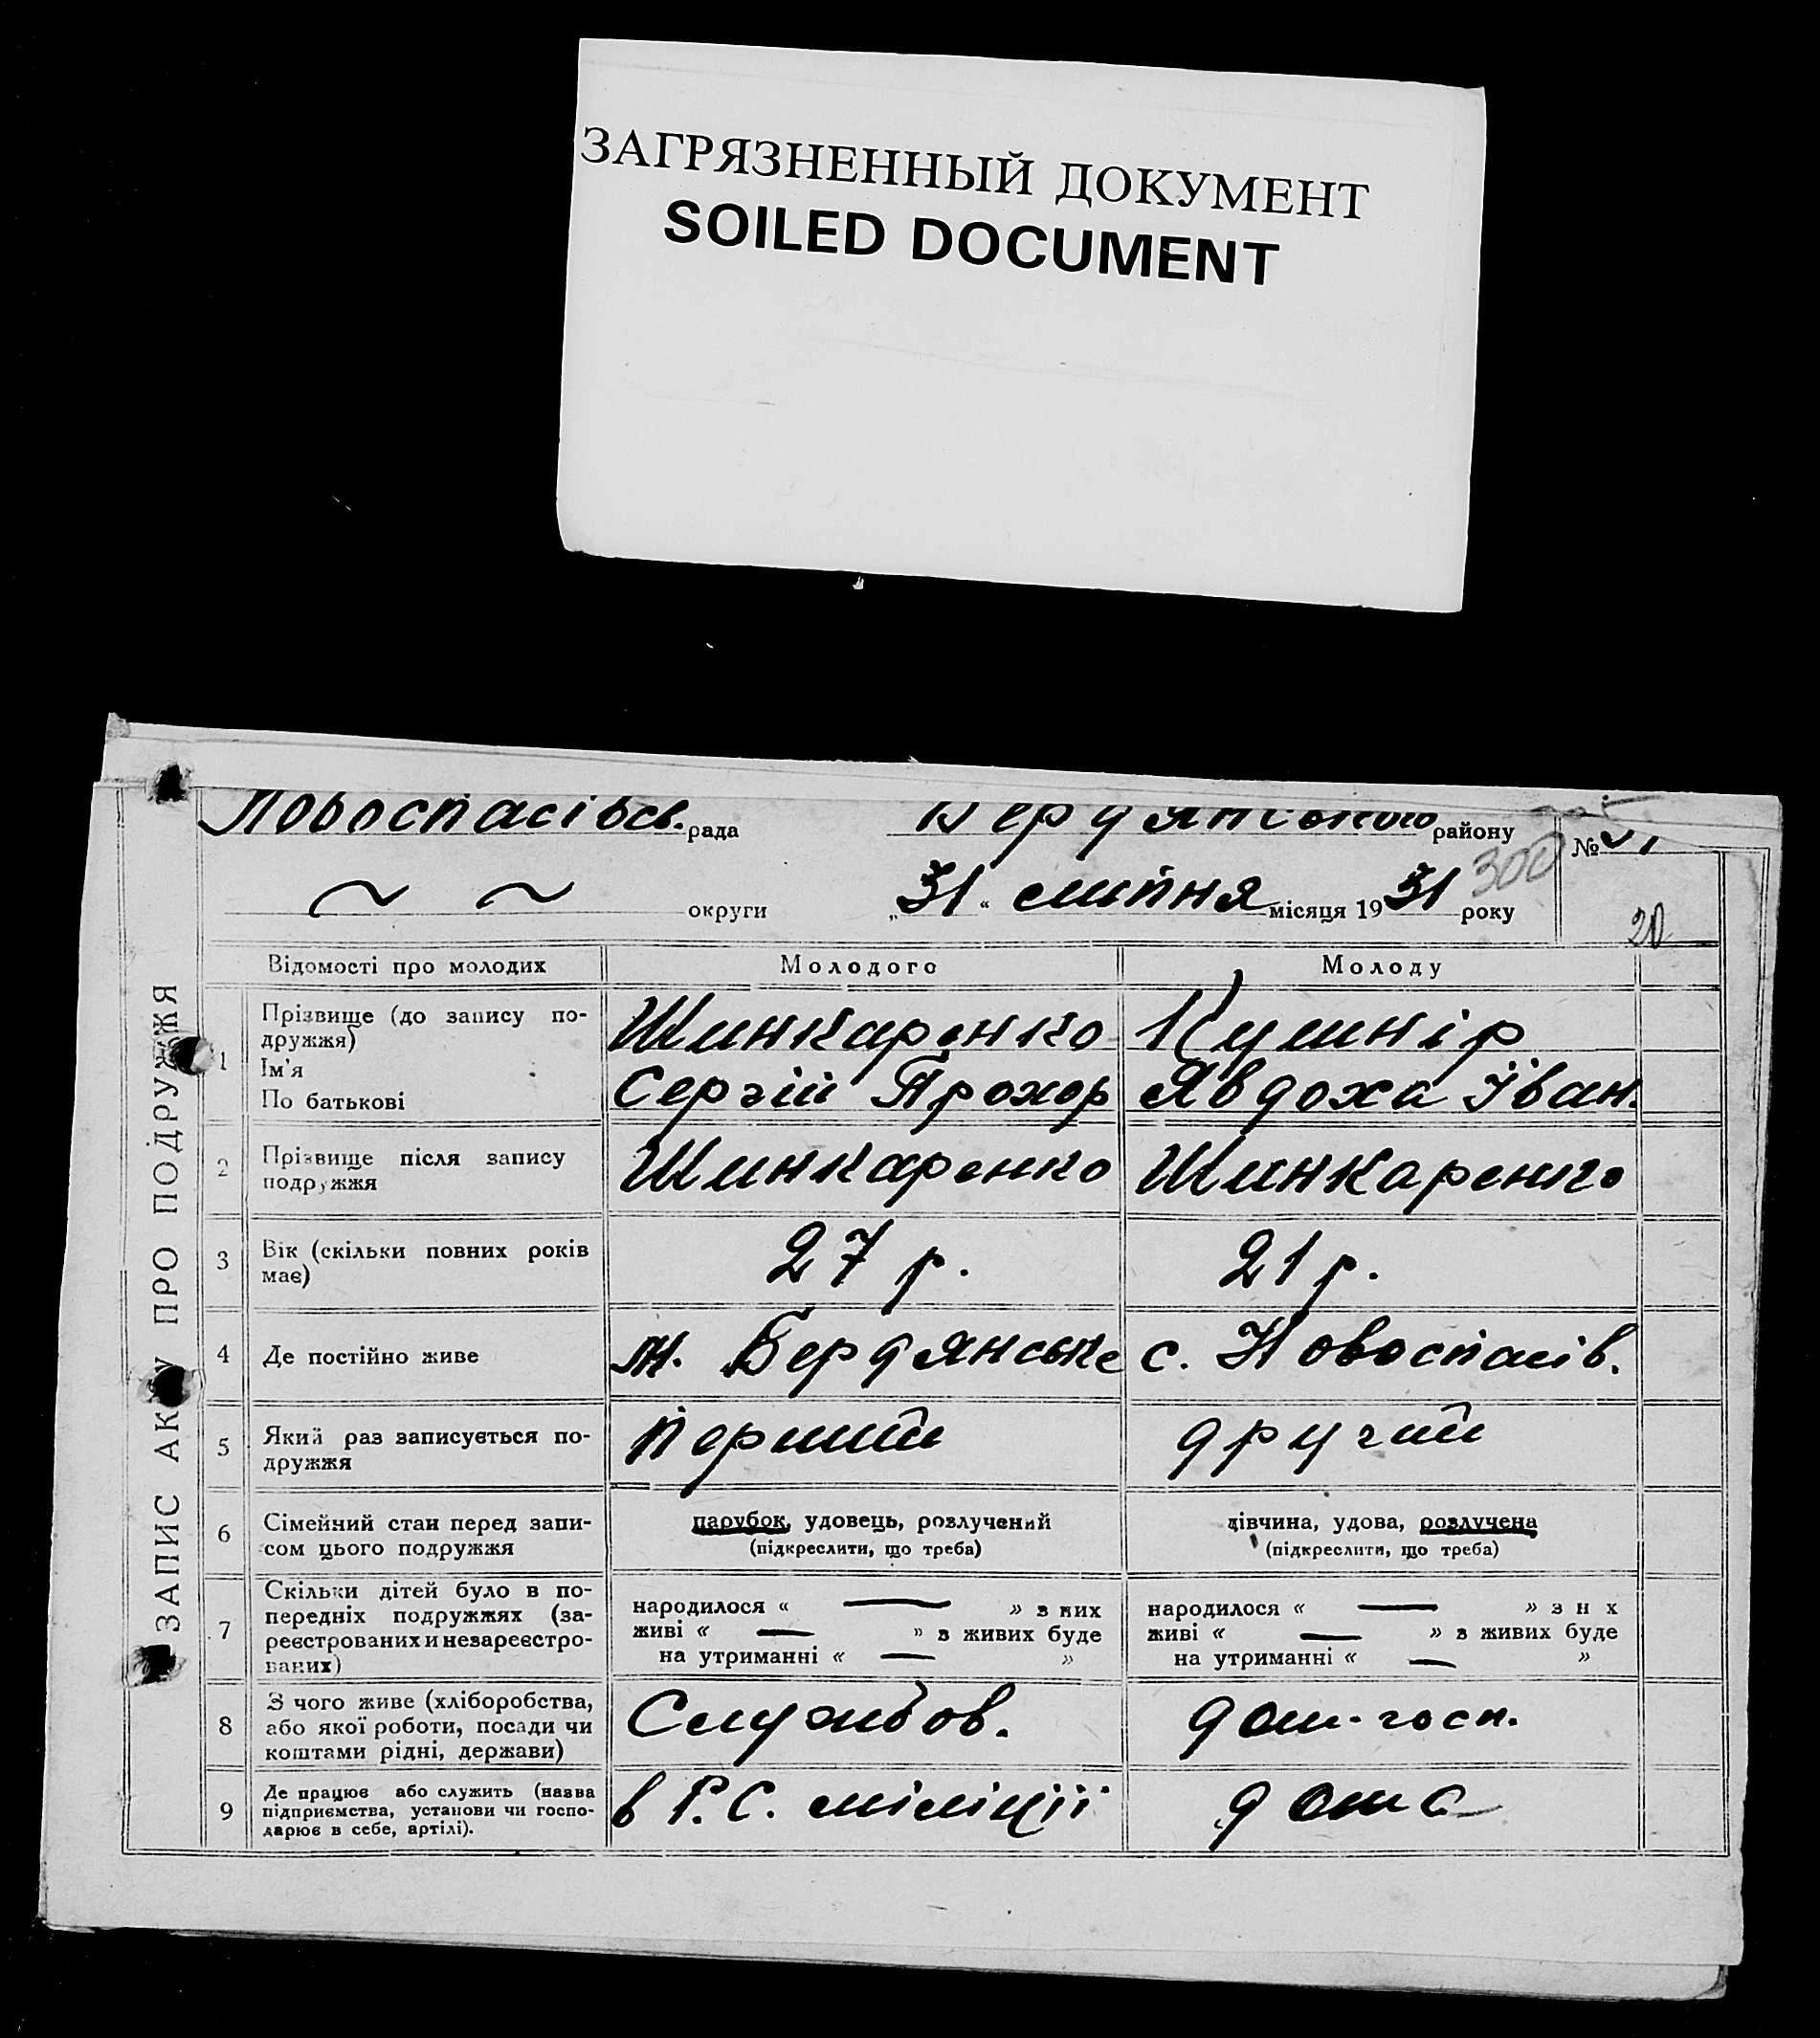 ЗАГРЯЗНЕННЫЙ ДОКУМЕНТ
SOILED DOCUMENT
Новоспасівсь. рада Бердянського району №
~ ~ округи „31“ липня місяця 1931 року
300
20
ЗАПИС АКТУ ПРО ПОДРУЖЖЯ
Відомості про молодих Молодого Молоду
1 Прізвище (до запису по-
дружжя) Шинкаренко Кушнір
Ім'я
По батькові Сергій Прохор Явдоха Іван.
2 Прізвище після запису
подружжя Шинкаренко Шинкаренко
3 Вік (скільки повних років
має) 27 р. 21 р.
4 Де постійно живе м. Бердянське с. Новоспасів.
5 Який раз записується по-
дружжя Перший другий
6 Сімейний стан перед запи-
сом цього подружжя
парубок, удовець, розлучений
(підкреслити, що треба)
дівчина, удова, розлучена
(підкреслити, що треба)
7 Скільки дітей було в по-
передніх подружжях (за-
реєстрованих и незареєстро-
ваних)
народилося « — » з них
живі « — » з живих буде
на утриманні « — »
народилося « — » з н х
живі « — » з живих буде
на утриманні « — »
8 З чого живе (хліборобства,
або якої роботи, посади чи
коштами рідні, держави)
Службов. дом-госп.
9 Де працює або служить (назва
підприємства, установи чи госпо-
дарює в себе, артілі).
в Р.С. міліції дома